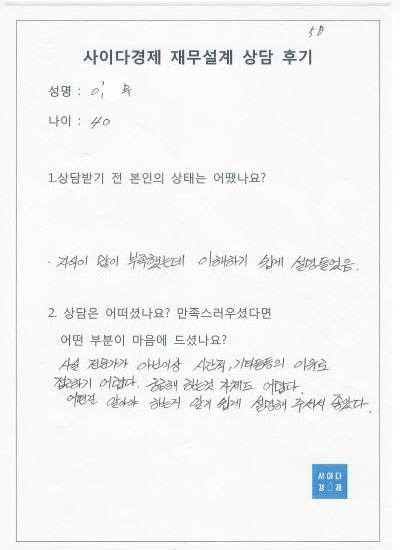 5月
사이다경제 재무설계 상담 후기
성명 : 이
나이 : 40
1.상담받기 전 본인의 상태는 어땠나요?
· 지식이 많이 부족했는데 이해하기 쉽게 설명들었음.
2. 상담은 어떠셨나요? 만족스러우셨다면
어떤 부분이 마음에 드셨나요?
사실 전문가가 아닌이상 시간적, 기타등등의 이유로
접근하기 어렵다. 궁금해 하는것 자체도 어렵다.
어떤걸 알아야 하는지 알기 쉽게 설명해 주셔서 좋았다.
사이다
경제